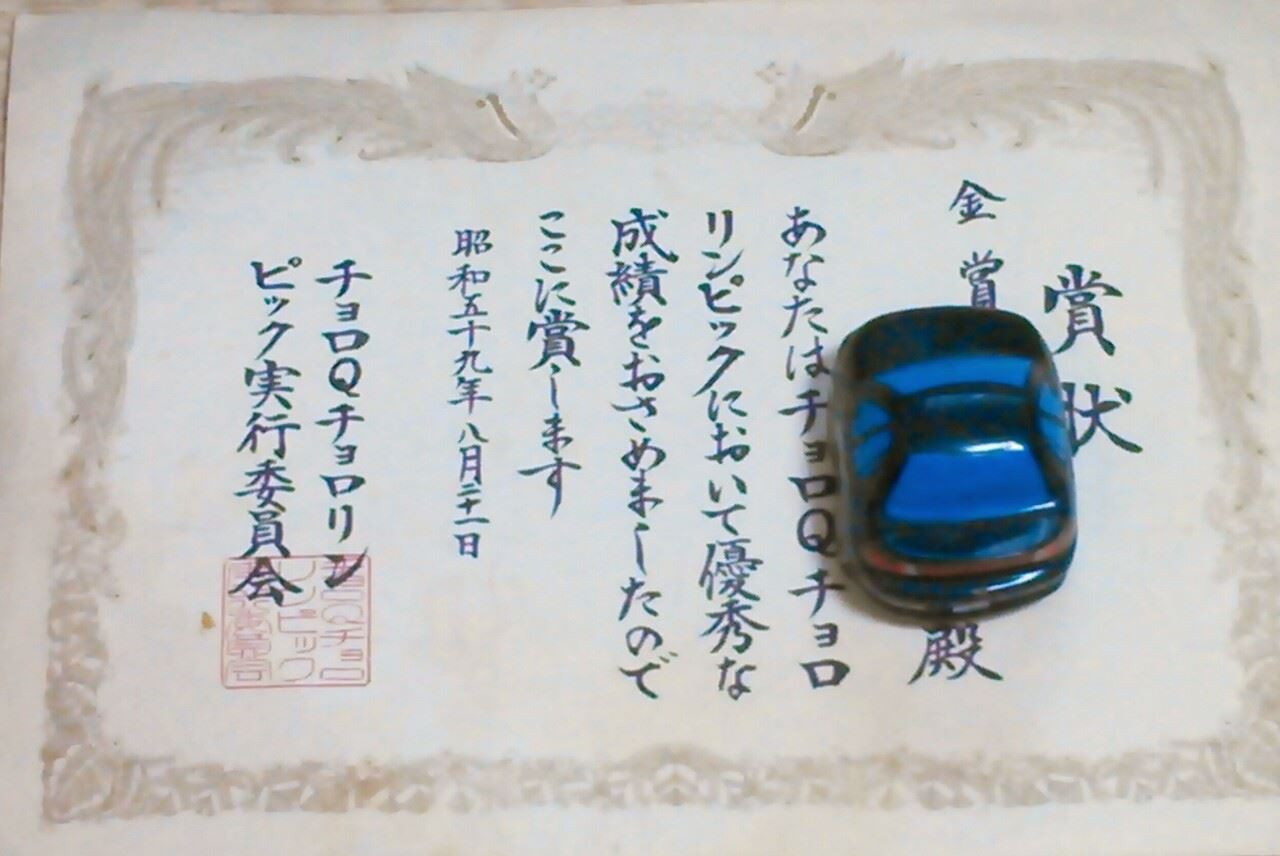 賞状
金賞
殿
あなたはチョロQチョロ
リンピックにおいて優秀な
成績をおさめましたので
ここに賞します
昭和五十九年八月二十一日
チョロQチョロリン
ピック実行委員会